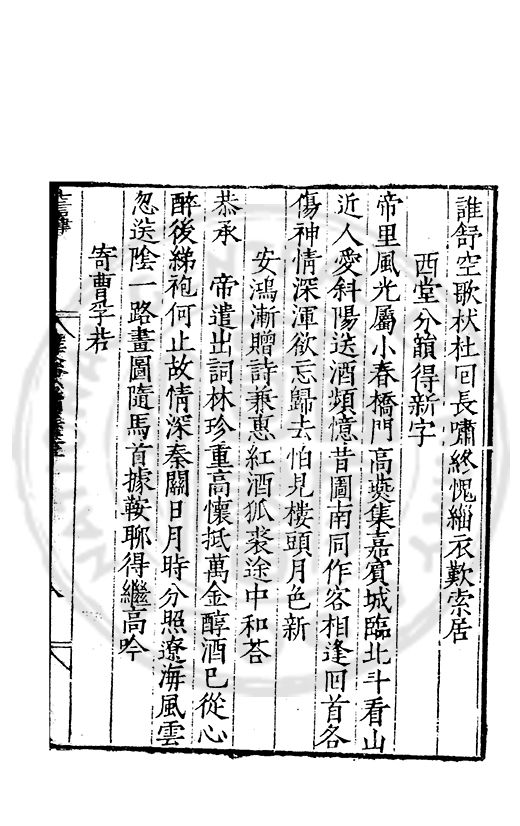 誰舒空歌杕杜回長嘯終愧緇衣歎索居
西堂分韻得新字
帝里風光屬小春橋門高讌集嘉賓城臨北斗看山
近人愛斜陽送酒頻憶昔圖南同作客相逢回首各
傷神情深渾欲忘歸去怕見樓頭月色新
安鴻漸贈詩兼惠紅酒狐裘途中和荅
恭承　帝遣出詞林珍重高懷抵萬金醇酒已從心
醉後綈袍何止故情深秦關日月時分照遼海風雲
忽送陰一路畫圖隨馬首據鞍聊得繼高吟
寄曹季若